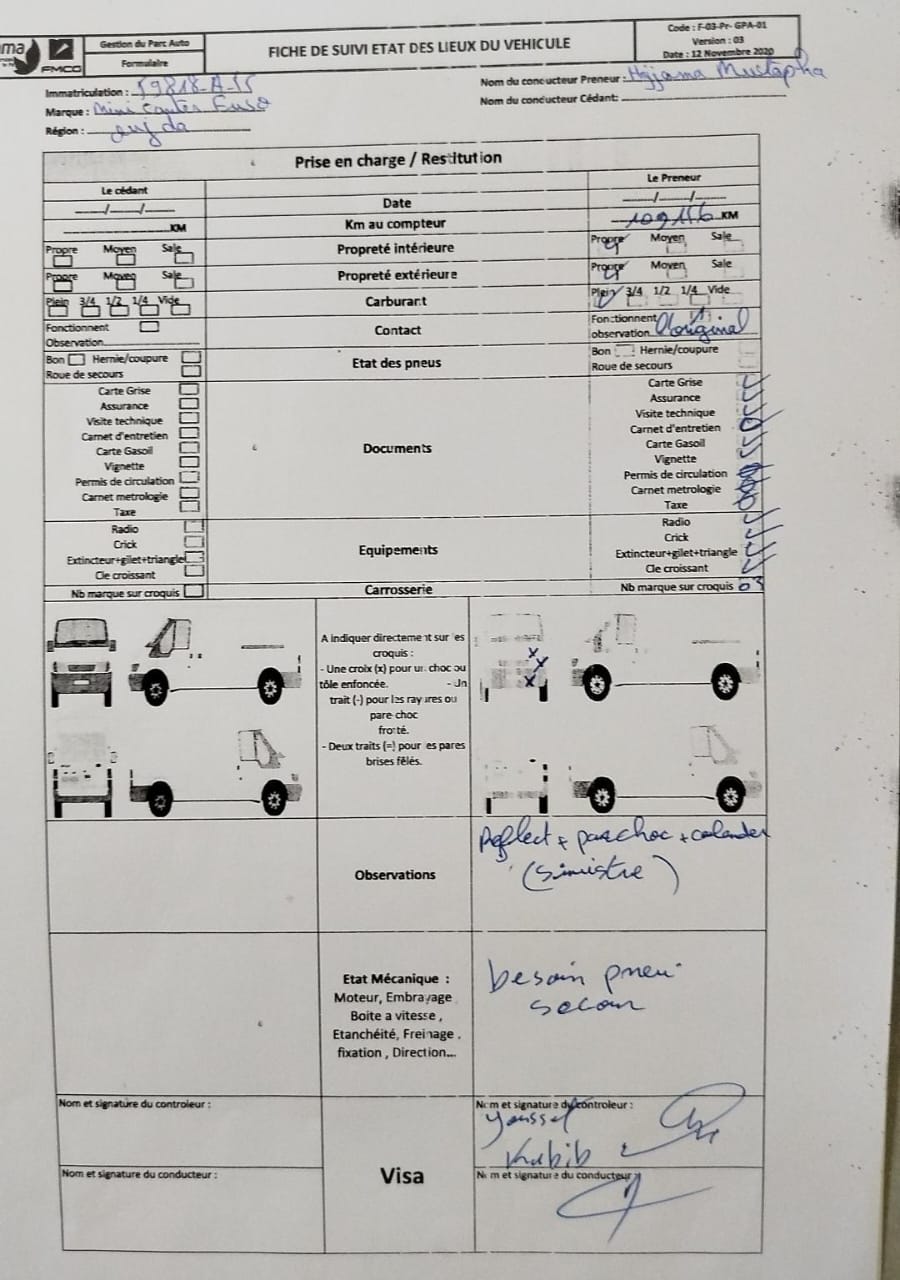 ama
FMCO
Gestion du Parc Auto
Formulaire
FICHE DE SUIVI ETAT DES LIEUX DU VEHICULE
Code : F-03-Pr- GPA-01
Version : 03
Date : 12 Novembre 2020
Immatriculation : 59818-A-55
Marque : Mini Canter Fuso
Région : oujda
Nom du concucteur Preneur : Hajjama Mustapha
Nom du conducteur Cédant:
Prise en charge / Restitution
Le cédant
Le Preneur
___/___/___ Date ___/___/___
KM Km au compteur 109156 KM
Propre Moyen Sale Propreté intérieure Propre Moyen Sale
Propre Moyen Sale Propreté extérieure Propre Moyen Sale
Plein 3/4 1/2 1/4 Vide Carburant Plein 3/4 1/2 1/4 Vide
Fonctionnent Contact Fonctionnent
Observation observation original
Bon Hernie/coupure Etat des pneus Bon Hernie/coupure
Roue de secours Roue de secours
Carte Grise Carte Grise
Assurance Assurance
Visite technique Visite technique
Carnet d'entretien Carnet d'entretien
Carte Gasoil Documents Carte Gasoil
Vignette Vignette
Permis de circulation Permis de circulation
Carnet metrologie Carnet metrologie
Taxe Taxe
Radio Radio
Crick Crick
Extincteur+gilet+triangle Equipements Extincteur+gilet+triangle
Cle croissant Cle croissant
Nb marque sur croquis Carrosserie Nb marque sur croquis 03
A indiquer directement sur les
croquis :
- Une croix (x) pour un choc ou
tôle enfoncée. - Un
trait (-) pour les rayures ou
pare-choc
frotté.
- Deux traits (=) pour les pares
brises fêlés.
x
x
x
Observations
Reflect + parechoc + calander
(Sinistre)
Etat Mécanique :
Moteur, Embrayage
Boite a vitesse ,
Etanchéité, Freinage ,
fixation , Direction...
besoin pneu
secour
Nom et signature du controleur :
Nom et signature du controleur :
Youssef
Kabib
Nom et signature du conducteur :
Visa
Nom et signature du conducteur :